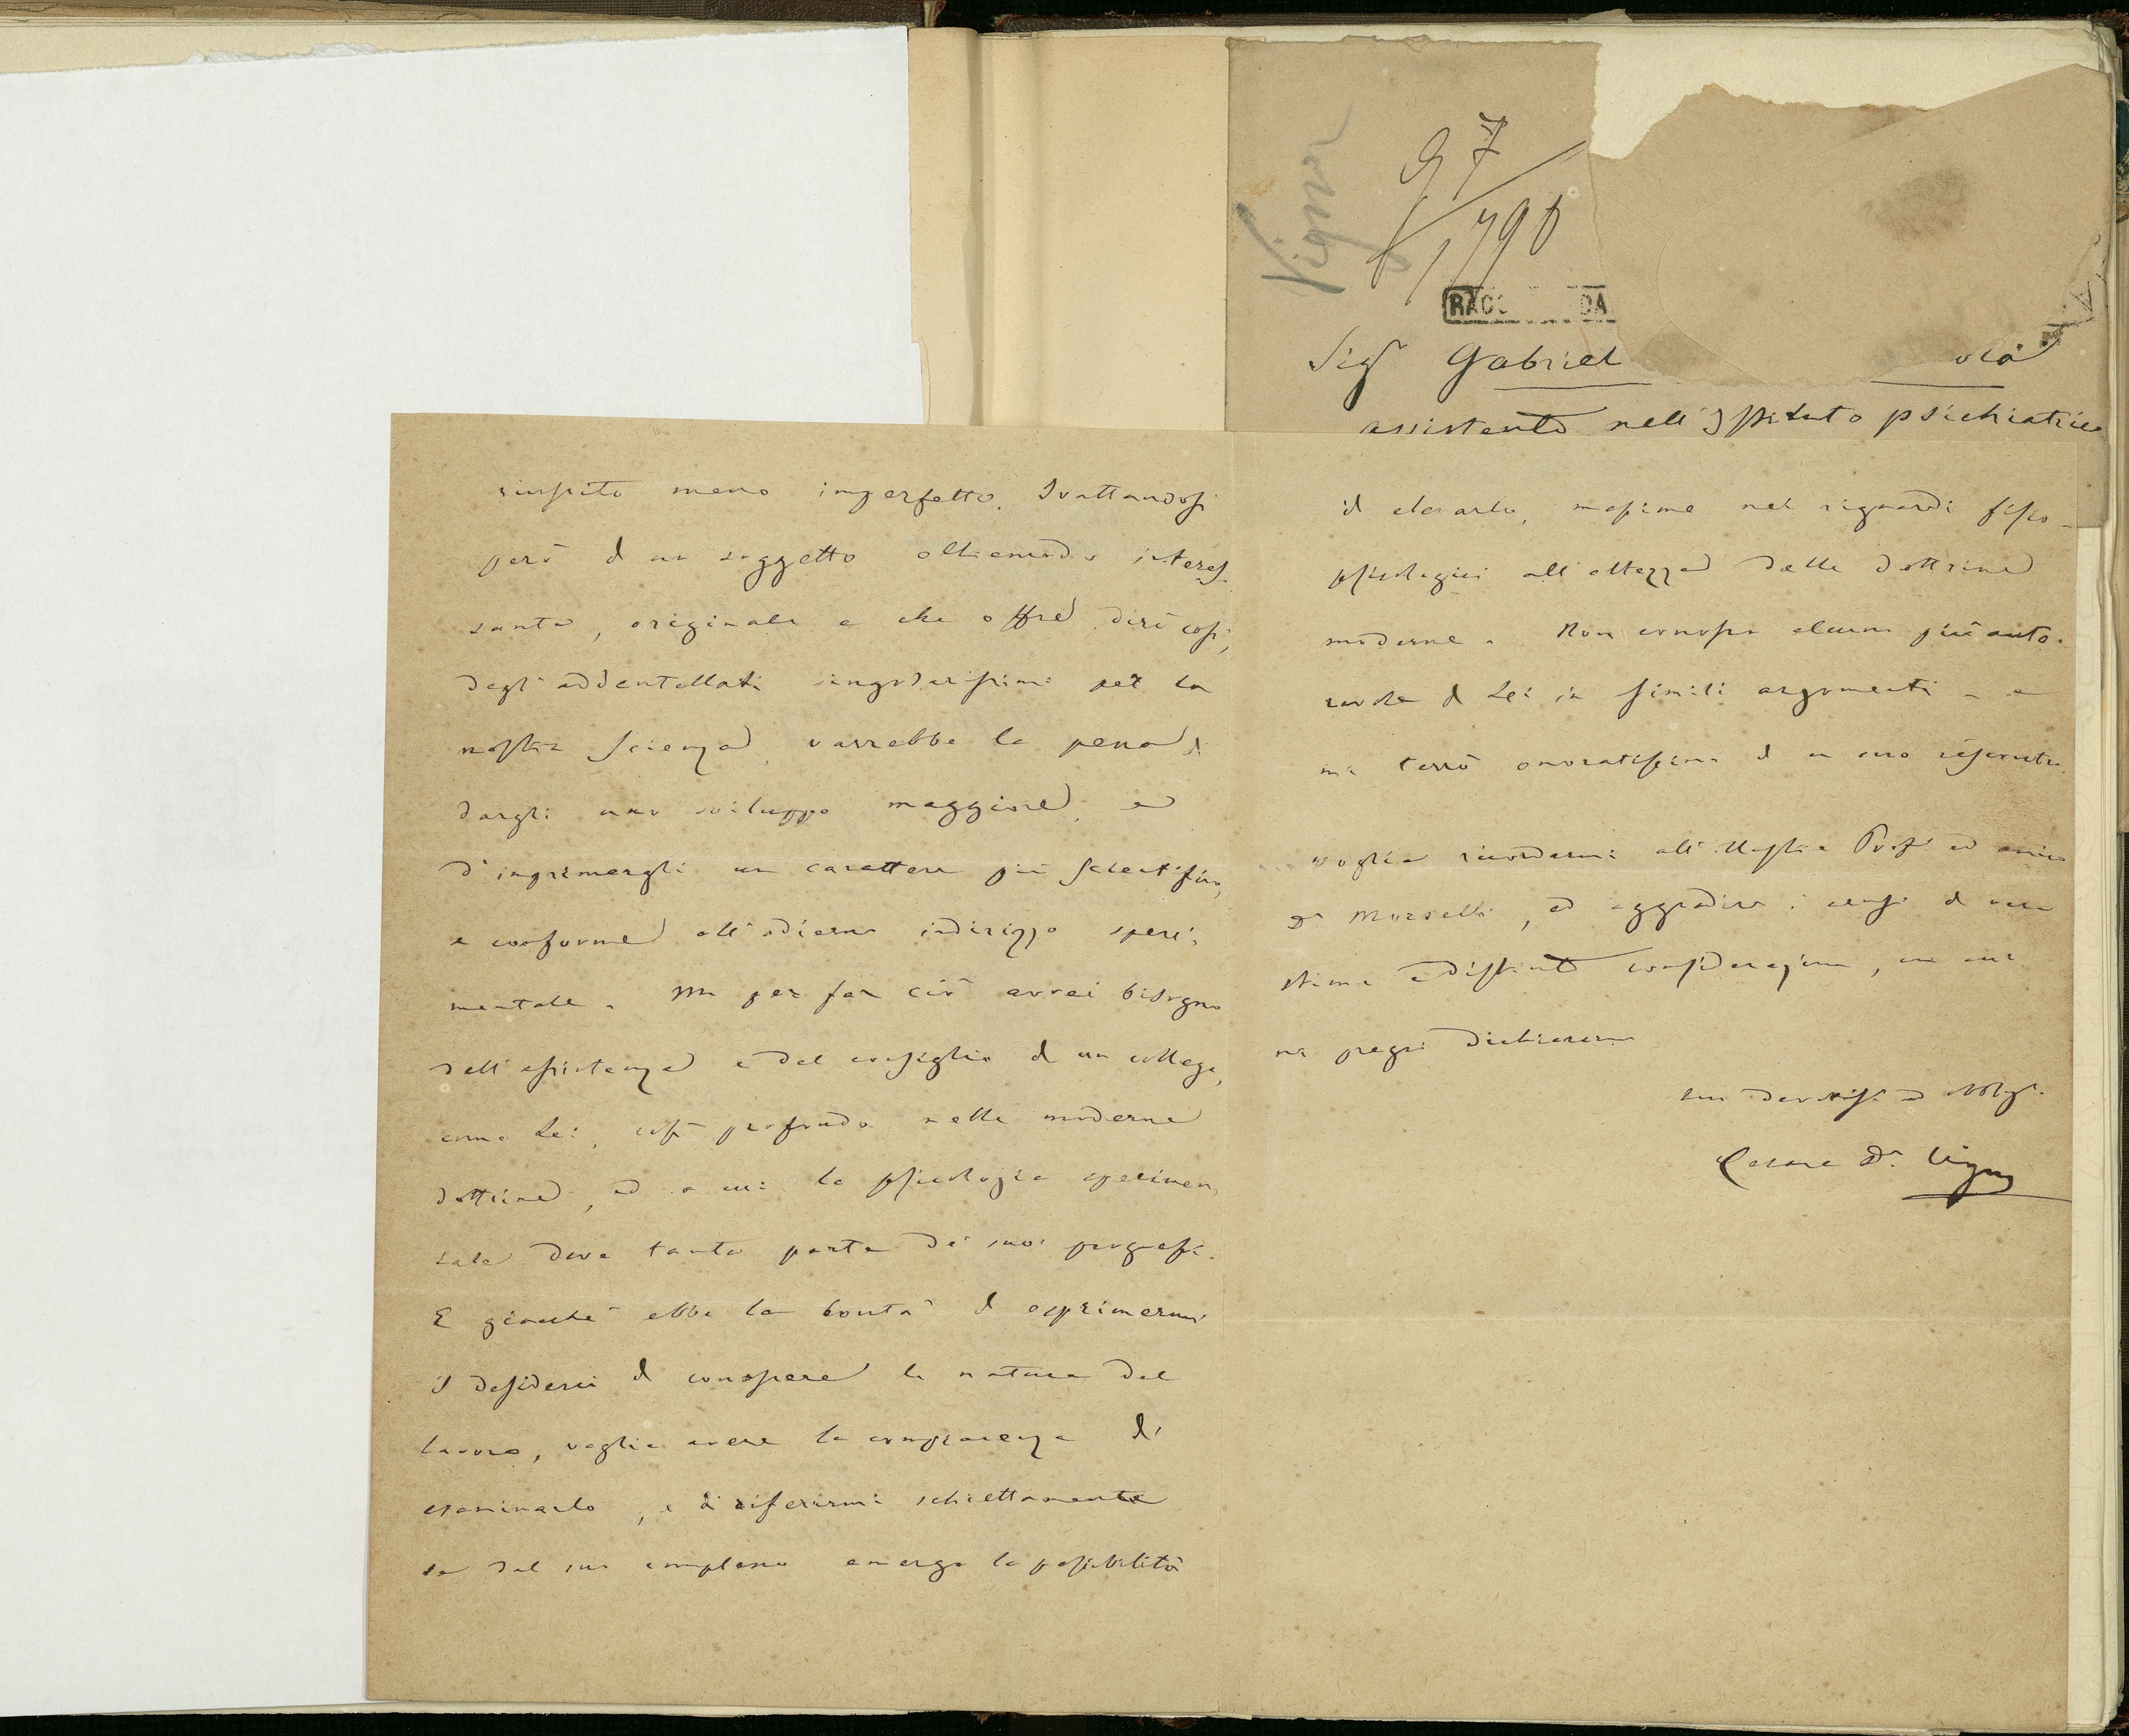 Vigna
97
1790
RACC DA
Sigr Gabriel ola
assistente nell'Istituto psichiatrico
riuscito meno imperfetto. Trattandosi
però di un soggetto oltremodo interes-
sante, originale e che offre, dirò così,
degli addentellati singolarissimi per la
nostra scienza, varrebbe la pena di
dargli uno sviluppo maggiore, e
d'imprimergli un carattere più scientifico,
e conforme all'odierno indirizzo speri-
mentale. Ma per far ciò avrei bisogno
dell'assistenza e del consiglio di un collega,
come Lei, così profondo nelle moderne
dottrine, ed a cui la psicologia sperimen-
tale deve tanta parte de' suoi progressi.
E giacchè ebbe la bontà di esprimermi
il desiderio di conoscere la natura del
lavoro, voglia avere la compiacenza di
esaminarlo, e di riferirmi schiettamente
se dal suo complesso emerge la possibilità
di elevarlo, massime nei riguardi fisio-
psicologici all'altezza delle dottrine
moderne. Non conosco alcuno più auto-
revole di Lei in simili argomenti - e
mi terrò onoratissimo di un suo riscontro.
Voglia ricordarmi all'illustre Prof ed amico
Dr Morselli, ed aggradire i sensi di vera
stima e distinta considerazione, con cui
mi pregio dichiararmi
suo devotiss ed obblg.
Cesare Dr. Vigna